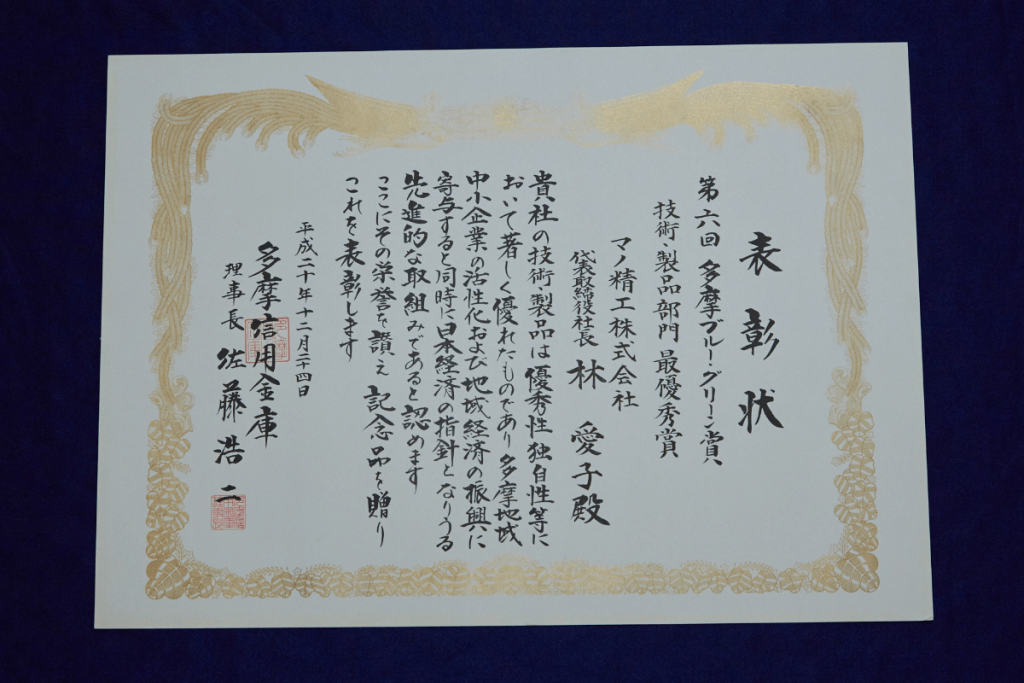 表彰状
第六回 多摩ブルー・グリーン賞
技術・製品部門 最優秀賞
マノ精工株式会社
代表取締役社長 林 愛子殿
貴社の技術・製品は優秀性独自性等に
おいて著しく優れたものであり多摩地域
中小企業の活性化および地域経済の振興に
寄与すると同時に日本経済の指針となりうる
先進的な取組みであると認めます
ここにその栄誉を讃え 記念品を贈り
これを表彰します
平成二十年十二月二十四日
多摩信用金庫
理事長 佐藤浩二